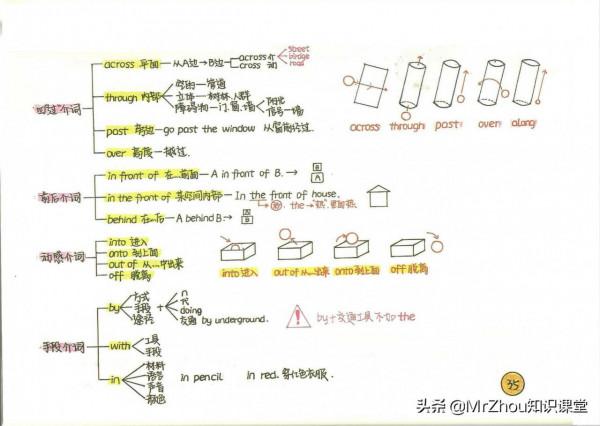 across 平面 — 从A边→B边
across 介
cross 动
street
bridge
road
"四过"介词
through 内部
管道
立体 — 树林、人群
障碍物 — 门、窗、墙
阳光
信号 — 墙
past 旁边 — go past the window 从窗前经过.
over 翻越 — 越过.
across
through
past
over
along
前后介词
in front of 在...前面 — A in front of B. →
B
A
in the front of 某空间内部 — In the front of house.
behind 在...后 — A behind B →
A
B
动感介词
into 进入
onto 到上面
out of 从...中出来
off 脱离
into 进入
out of 从...出来
onto 到上面
off 脱离
手段介词
by
方式
手段
途径
+
n
doing
交通 by underground.
by+交通工具不加 the
with
工具
手段
in
材料
语言
声音
颜色
in pencil
in red. 穿红色衣服.
35
头条 @MrZhou知识课堂